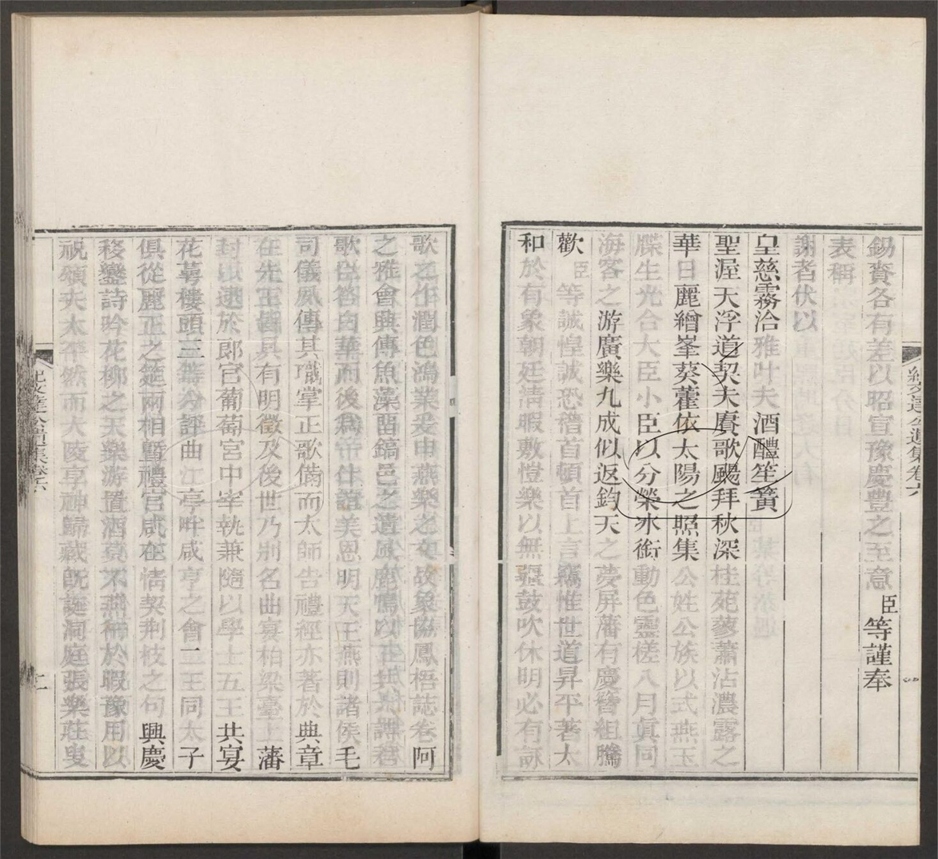 錫賚各有差以昭宣豫慶豐之至意臣等謹奉
表稱
謝者伏以
皇慈霧洽雅叶夫酒醴笙簧
聖渥天浮道契夫賡歌颺拜秋深桂苑蓼蕭沾濃露之
華日麗繒峯葵藿依太陽之照集公姓公族以式燕玉
牒生光合大臣小臣以分榮冰銜動色靈槎八月真同
海客之游廣樂九成似返鈞天之夢屏藩有慶簪組騰
歡臣等誠惶誠恐稽首頓首上言竊惟世道昇平著太
和於有象朝廷清暇敷愷樂以無疆鼓吹休明必有詠
歌之作潤色鴻業爰申燕樂之文故象協鳳梧誌卷阿
之雅會興傳魚藻西鎬邑之遺風
歌臣答白華而後為帝仕譜美恩明天王燕則諸侯毛
司儀夙傳其職掌正歌備而太師告禮經亦著於典章
在先王舊具有明徵及後世乃別名曲宴柏梁臺上藩
封以逮於郎官葡萄宮中宰執兼隨以學士五王共宴
花萼樓頭三等分評曲江亭畔咸亨之會一王同太子
俱從麗正之筵兩相暨禮官咸在情契荆枝之句興慶
移鑾詩吟花柳之天樂游置酒
祝頌夫太平然而大陵享神歸藏既誕洞庭張樂莊叟
紀文達公遺集卷六